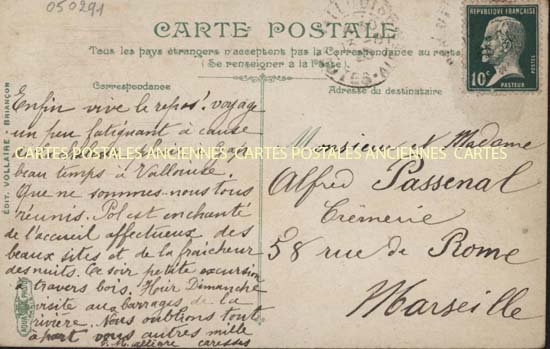 050291
CARTE POSTALE
Tous les pays étrangers n'acceptent pas la Correspondance au recto
(Se renseigner à la Poste)
Correspondance
Adresse du destinataire
REPUBLIQUE FRANÇAISE
10c
POSTES
PASTEUR
ÉDIT. VOLLAIRE - BRIANÇON
Enfin vive le repos! voyage
un peu fatiguant à cause
beau temps à Vallouise.
Que ne sommes-nous tous
réunis. Pol est enchanté
de l'accueil affectueux des
beaux sites et de la fraîcheur
des nuits. Ce soir petite excursion
à travers bois. Hier Dimanche
visite aux barrages de la
rivière. Nous oublions tout
à part vous autres mille
caresses
Monsieur & Madame
Alfred Passenal
Crèmerie
58 rue de Rome
Marseille
CARTES POSTALES ANCIENNES CARTES POSTALES ANCIENNES CARTES